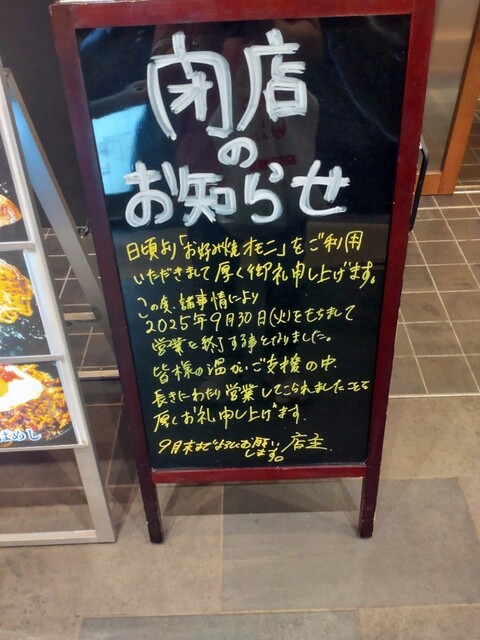 閉店
の
お知らせ
日頃より「お好み焼オモニ」をご利用
いただきまして厚く御礼申し上げます。
この度、諸事情により
2025年9月30日(火)をもちまして
営業を終了する事となりました。
皆様の温かいご支援の中、
長きにわたり営業してこられましたことを
厚くお礼申し上げます。
9月末までよろしくお願い
します。
店主
めし